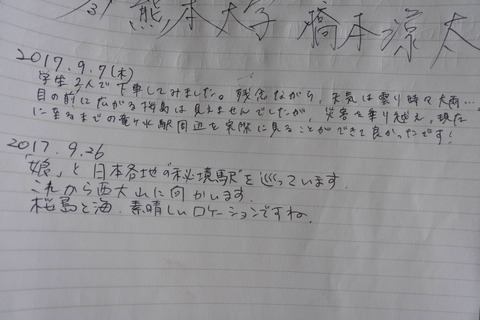 熊本大学 橋本涼太
2017.9.7(木)
学生2人で下車してみました。残念ながら、天気は曇り時々大雨…
目の前に広がる桜島は見えませんでしたが、災害を乗り越え、現在
に至るまでの竜ヶ水駅周辺を実際に見ることができて良かったです!
2017.9.26
「娘」と日本各地"秘境駅"を巡っています。
これから西大山に向かいます。
桜島と海、素晴しいロケーションですね。